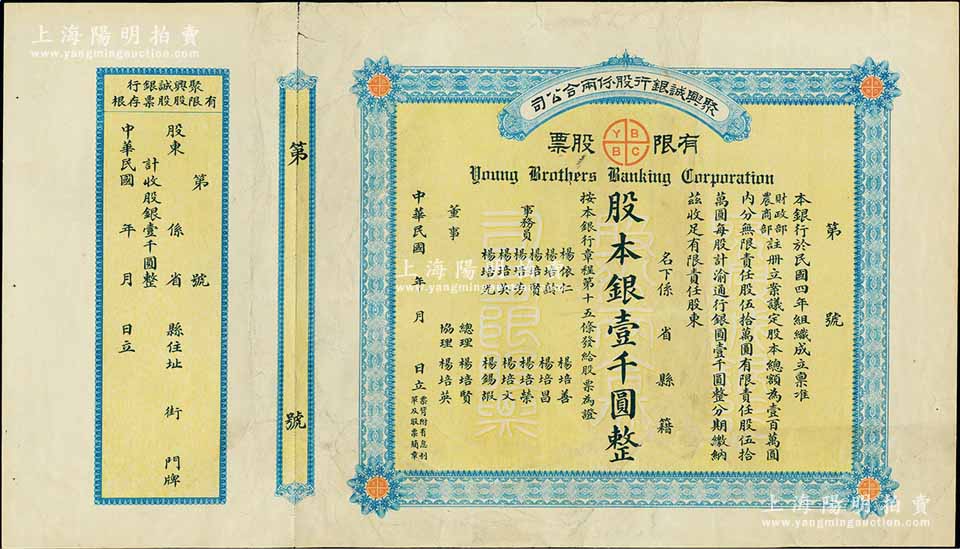 上海陽明拍賣
www.yangmingauction.com
聚興誠銀行股份兩合公司
有限股票
Y B
B C
Young Brothers Banking Corporation
第 號
本銀行於民國四年組織成立稟准
財政部
農商部註册立業議定股本總額為壹百萬圓
內分無限責任股伍拾萬圓有限責任股伍拾
萬圓每股計渝通行銀圓壹千圓整分期繳納
茲收足有限責任股東
名下係 省 縣 籍
股本銀壹千圓整
按本銀行章程第十五條發給股票為證
事務員
楊依仁 楊培善
楊培賢 楊培榮
楊培英 楊培文
楊培昌
楊錫嘏
董事
總理 楊培賢
協理 楊培英
中華民國 年 月 日立
票背附有息刊
單及股票簡章
第 號
聚興誠銀行
有限股股票存根
第 號
股東 係 省 縣住址 街 門牌
計收股銀壹千圓整
中華民國 年 月 日立
上海陽明拍賣
www.yangmingauction.com
上海陽明拍賣
www.yangmingauction.com